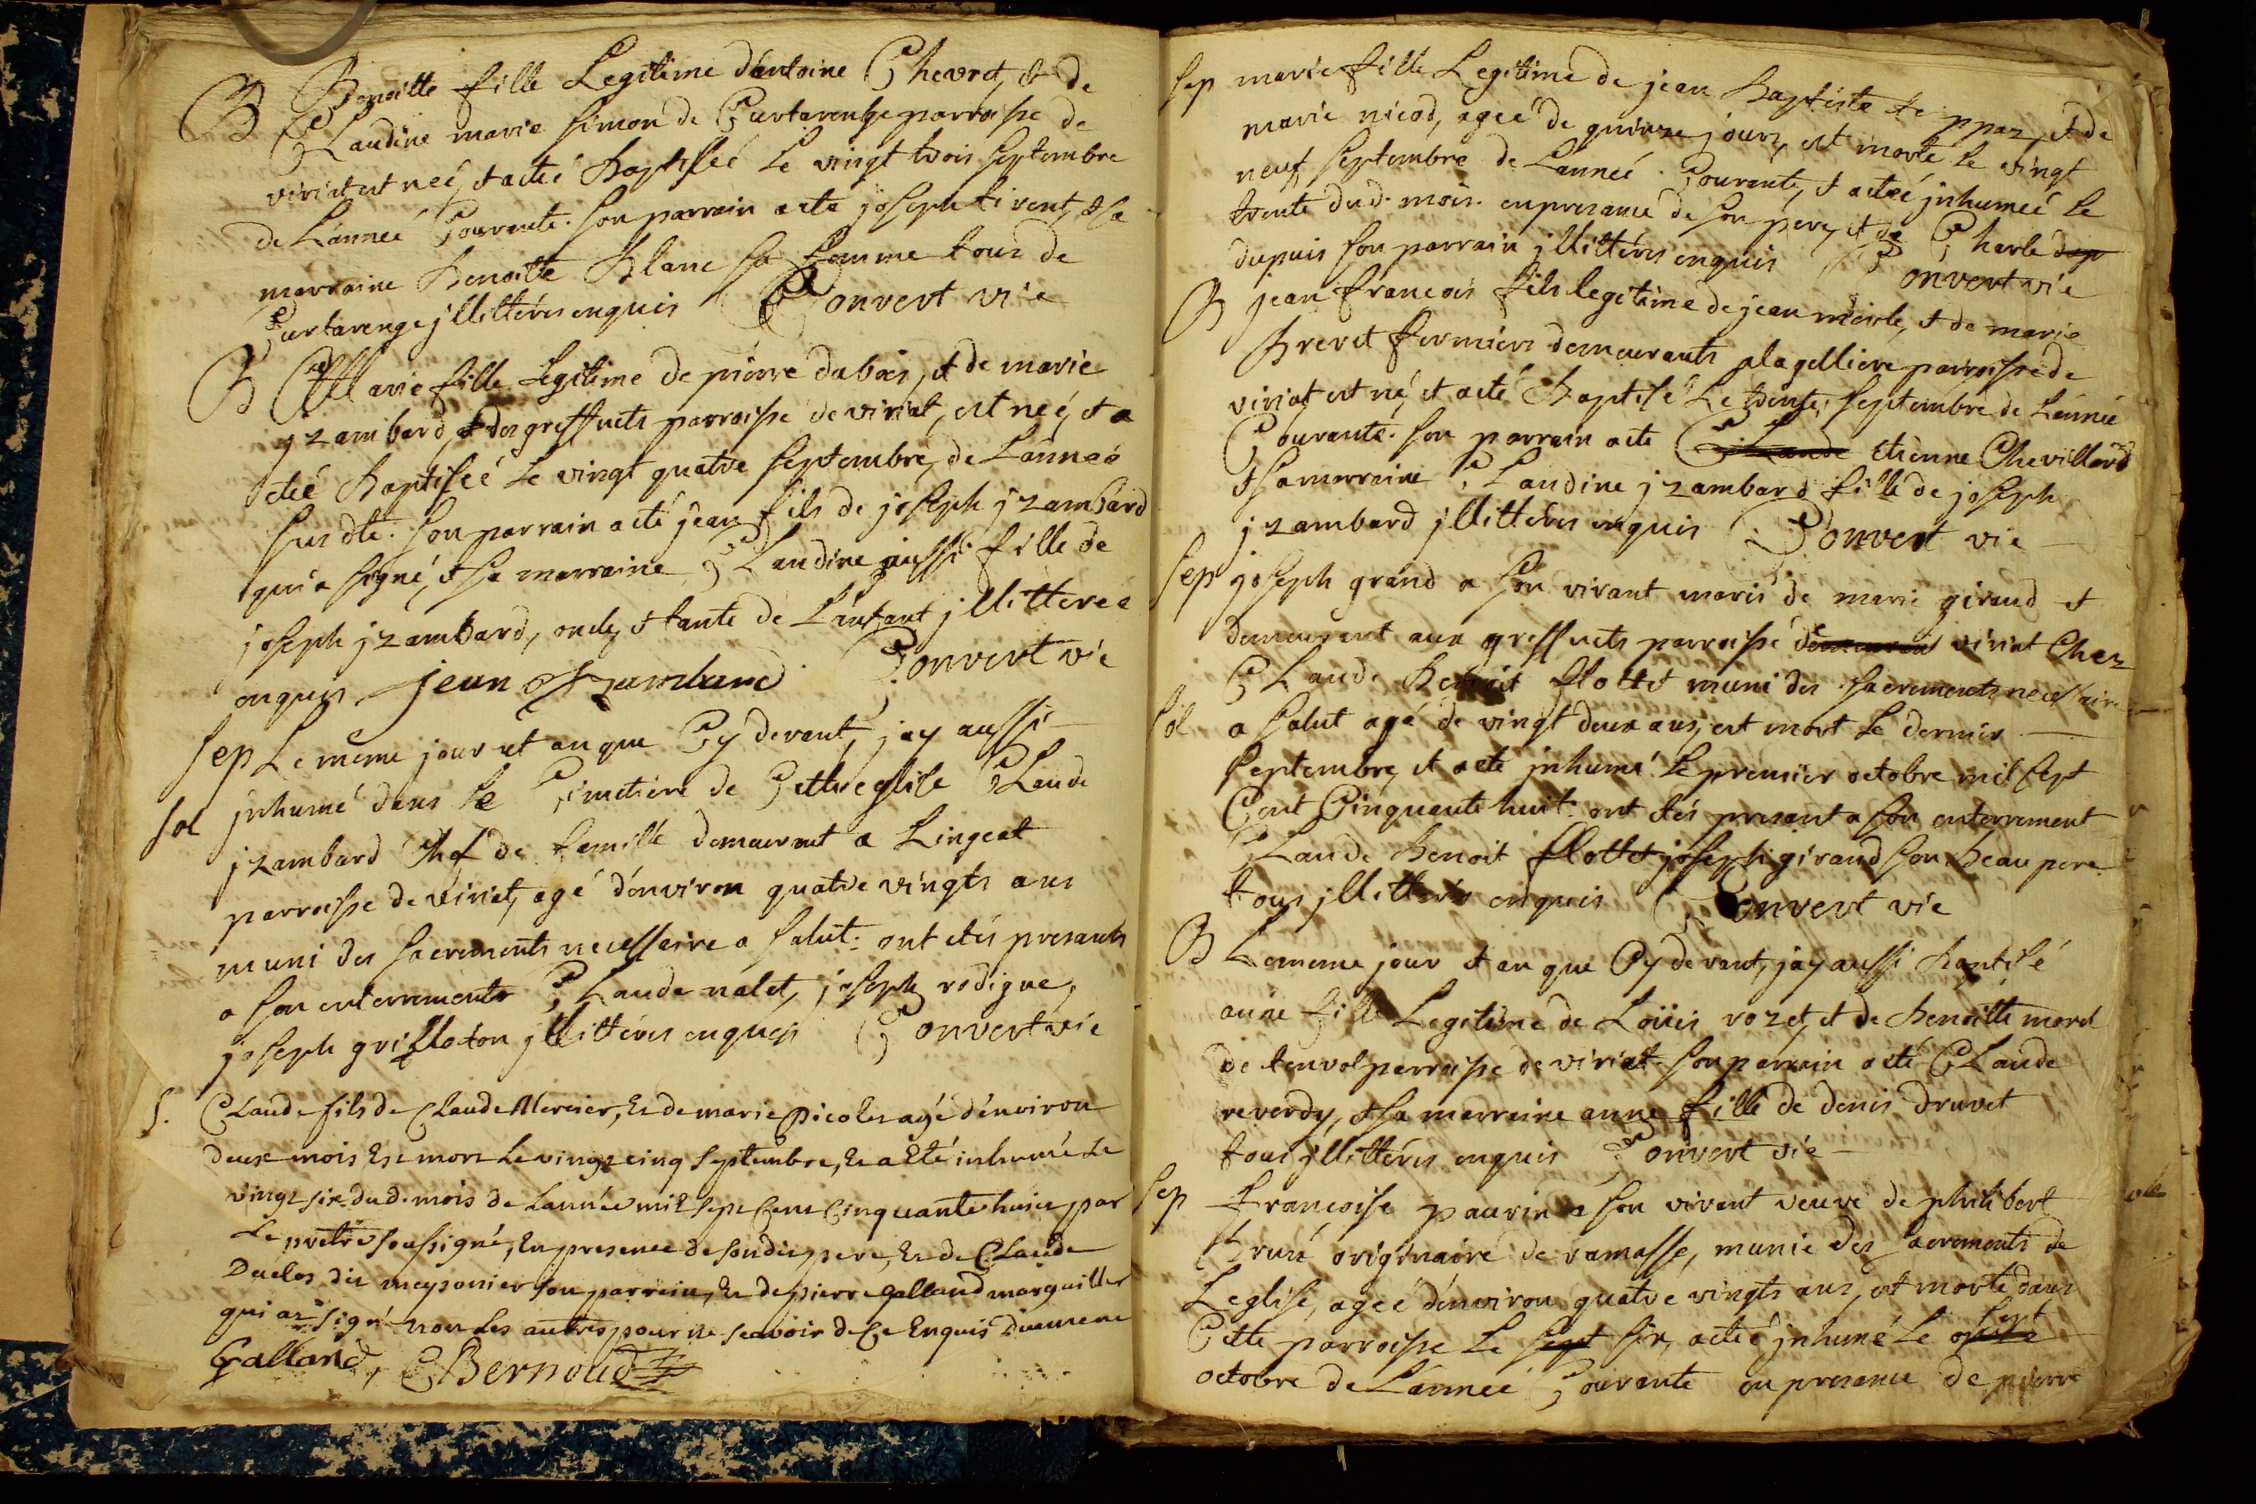 B Benoitte fille Legitime d'antoine Chevret, et de
Claudine marie simon de Curtarenge parroisse de
viriat est neé, et a eté Baptiseé Le vingt trois septembre
de L'anneé Courante. son parrain a eté joseph tirent, et sa
marraine Benoitte Blanc sa femme tous de
Curtarenge jllittérés enquis Convert vic
B Marie fille Legitime de pierre dubois, et de marie
jzambard, des greffiets parroisse de viriat, est neé, et a
eteé Baptiseé Le vingt quatre septembre, de L'anneé
susdte. son parrain a eté jean fils de joseph jzambard
qui a signé, et sa marraine Claudine aussi fille de
joseph jzambard, oncle, et tante de L'enfant jllittereé
enquis jean jzambard Convert vic
sep Le même jour et an que Cy devant, j'ay aussi
sol jnhumé dans Le Cimetiere de Cette eglise Claude
jzambard Chef de famille demeurant a Lingeat
parroisse de viriat, agé d'environ quatre vingts ans
muni des sacrements necessaire a salut. ont etés presants
a son enterrements Claude nalet, joseph rodigue,
joseph grilloton jllittérés enquis Convert vic
S. Claude fils de Claude Mercier, Et de marie Picolet agé d'environ
deux mois Est mort Le vingt cinq septembre, Et a Eté inhumé Le
vingt six dud. mois de L'année mil sept Cent Cinquante huit par
Le prêtre soussigné, En presence de son dit pere, Et de Claude
Duclos dit meysonier son parrein, Et de pierre galland marguiller
qui a signé non Les autres pour ne scavoir de Ce Enquis Duement
Galland, CBernoud
sep marie fille Legitime de jean Baptiste te ppaz, et de
marie nicod, ageé de quinze jours, est morte Le vingt
neuf septembre de L'anneé Courante, et a eteé jnhumeé Le
trente dud. mois. en presance de son pere, et de Charle dup
dupuis son parrain jllittérés enquis Convert vic
B jean francois fils legitime de jean merle, et de marie
Brevet fermiers demeurants a la gelliere parroisse de
viriat est né, et a eté Baptisé Le trente septembre de L'anneé
Courante. son parrain a eté Claude Etienne Chevillard
et sa marraine Claudine jzambard fille de joseph
jzambard jllittérés enquis Convert vic
sep joseph grand a son vivant maris de marie giraud et
demeurant aux greffiets parroisse demeurant viriat Chez
Claude Benoit flottet muni des sacrements necessaire
sol a salut agé de vingt deux ans, est mort Le dernier
septembre, et a eté jnhumé Le premier octobre mil sept
Cent Cinquante huit. ont etés presant a son enterrement
Claude Benoit flottet joseph giraud son beau pere
tous jllittérés enquis Convert vic
B Le meme jour et an que Cy devant, j'ay aussi baptisé
anne fille Legitime de Loüis rozet, et de benoitte morel
de tenvol parroisse de viriat. son parrain a eté Claude
reverdy, et sa marraine anne fille de denis druvet
tous jllittérés enquis Convert vic
sep francoise paurin a son vivant veuve de philibert
Brura originaire de ramasse, munie des sacrements de
L'eglise, ageé d'environ quatre vingts ans, est morte dans
Cette parroisse Le sept six, a eteé jnhumé Le sept
octobre de L'anneé Courante en presance de pierre